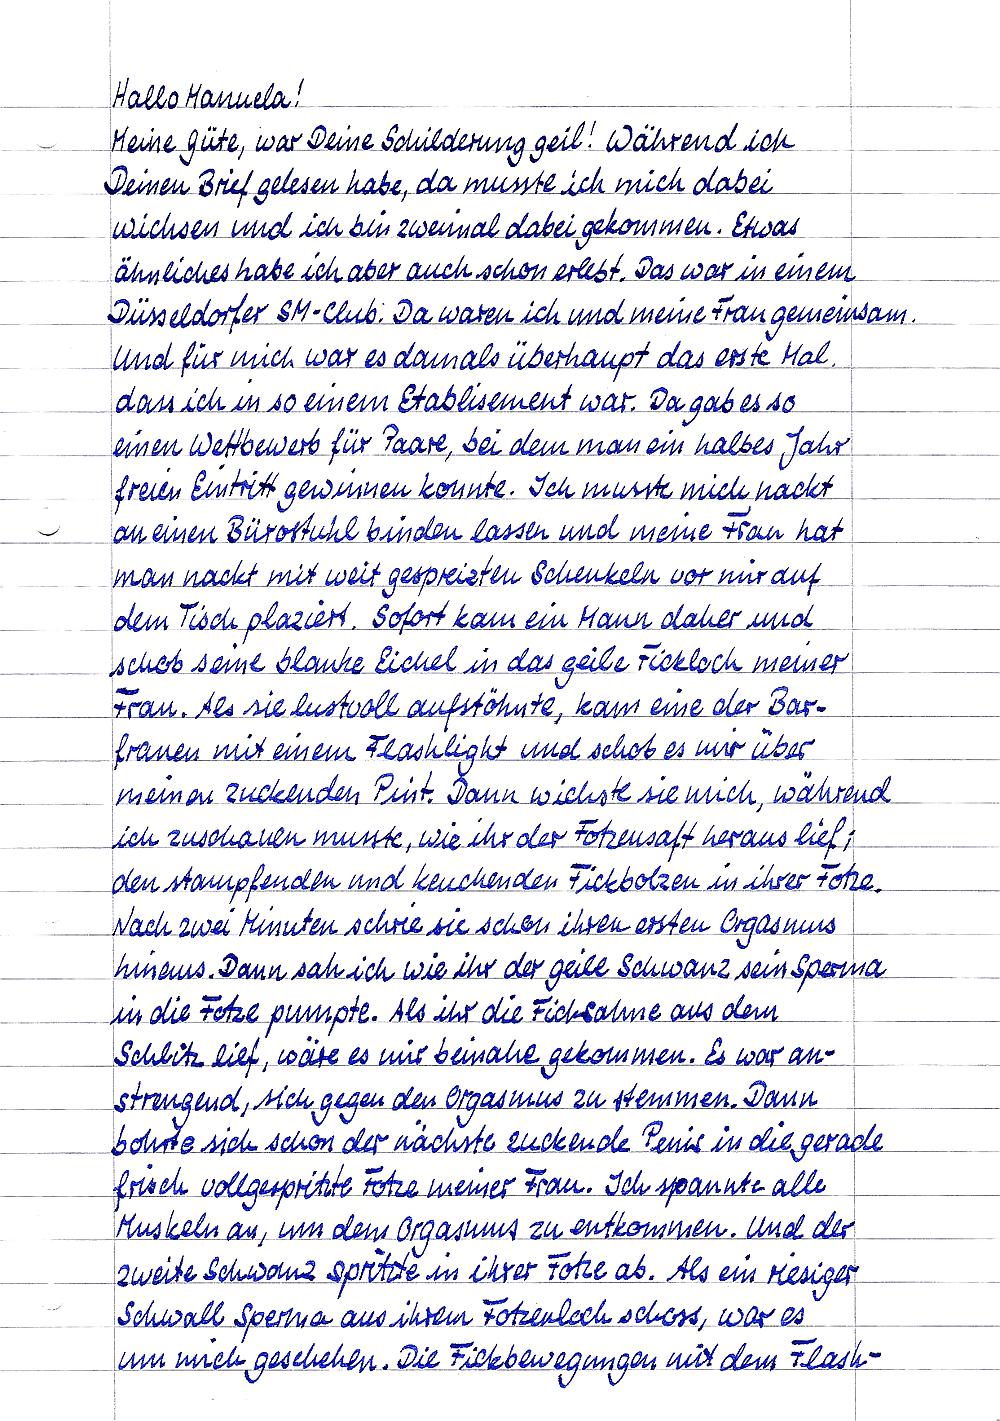 Hallo Manuela!
Meine Güte, war Deine Schilderung geil! Während ich
Deinen Brief gelesen habe, da musste ich mich dabei
wichsen und ich bin zweimal dabei gekommen. Etwas
ähnliches habe ich aber auch schon erlebt. Das war in einem
Düsseldorfer SM-Club. Da waren ich und meine Frau gemeinsam.
Und für mich war es damals überhaupt das erste Mal.
dass ich in so einem Etablisement war. Da gab es so
einen Wettbewerb für Paare, bei dem man ein halbes Jahr
freien Eintritt gewinnen konnte. Ich musste mich nackt
an einen Bürostuhl binden lassen und meine Frau hat
man nackt mit weit gespreizten Schenkeln vor mir auf
dem Tisch plaziert. Sofort kam ein Mann daher und
schob seine blanke Eichel in das geile Fickloch meiner
Frau. Als sie lustvoll aufstöhnte, kam eine der Bar-
frauen mit einem Flashlight und schob es mir über
meinen zuckenden Pint. Dann wichste sie mich, während
ich zuschauen musste, wie ihr der Fotzensaft heraus lief;
den stampfenden und keuchenden Fickbolzen in ihrer Fotze.
Nach zwei Minuten schrie sie schon ihren ersten Orgasmus
hinaus. Dann sah ich wie ihr der geile Schwanz sein Sperma
in die Fotze pumpte. Als ihr die Ficksahne aus dem
Schlitz lief, wäre es mir beinahe gekommen. Es war an-
strengend, sich gegen den Orgasmus zu stemmen. Dann
bohrte sich schon der nächste zuckende Penis in die gerade
frisch vollgespritzte Fotze meiner Frau. Ich spannte alle
Muskeln an, um dem Orgasmus zu entkommen. Und der
zweite Schwanz spritzte in ihrer Fotze ab. Als ein riesiger
Schwall Sperma aus ihrem Fotzenloch schoss, war es
um mich geschehen. Die Fickbewegungen mit dem Flash-